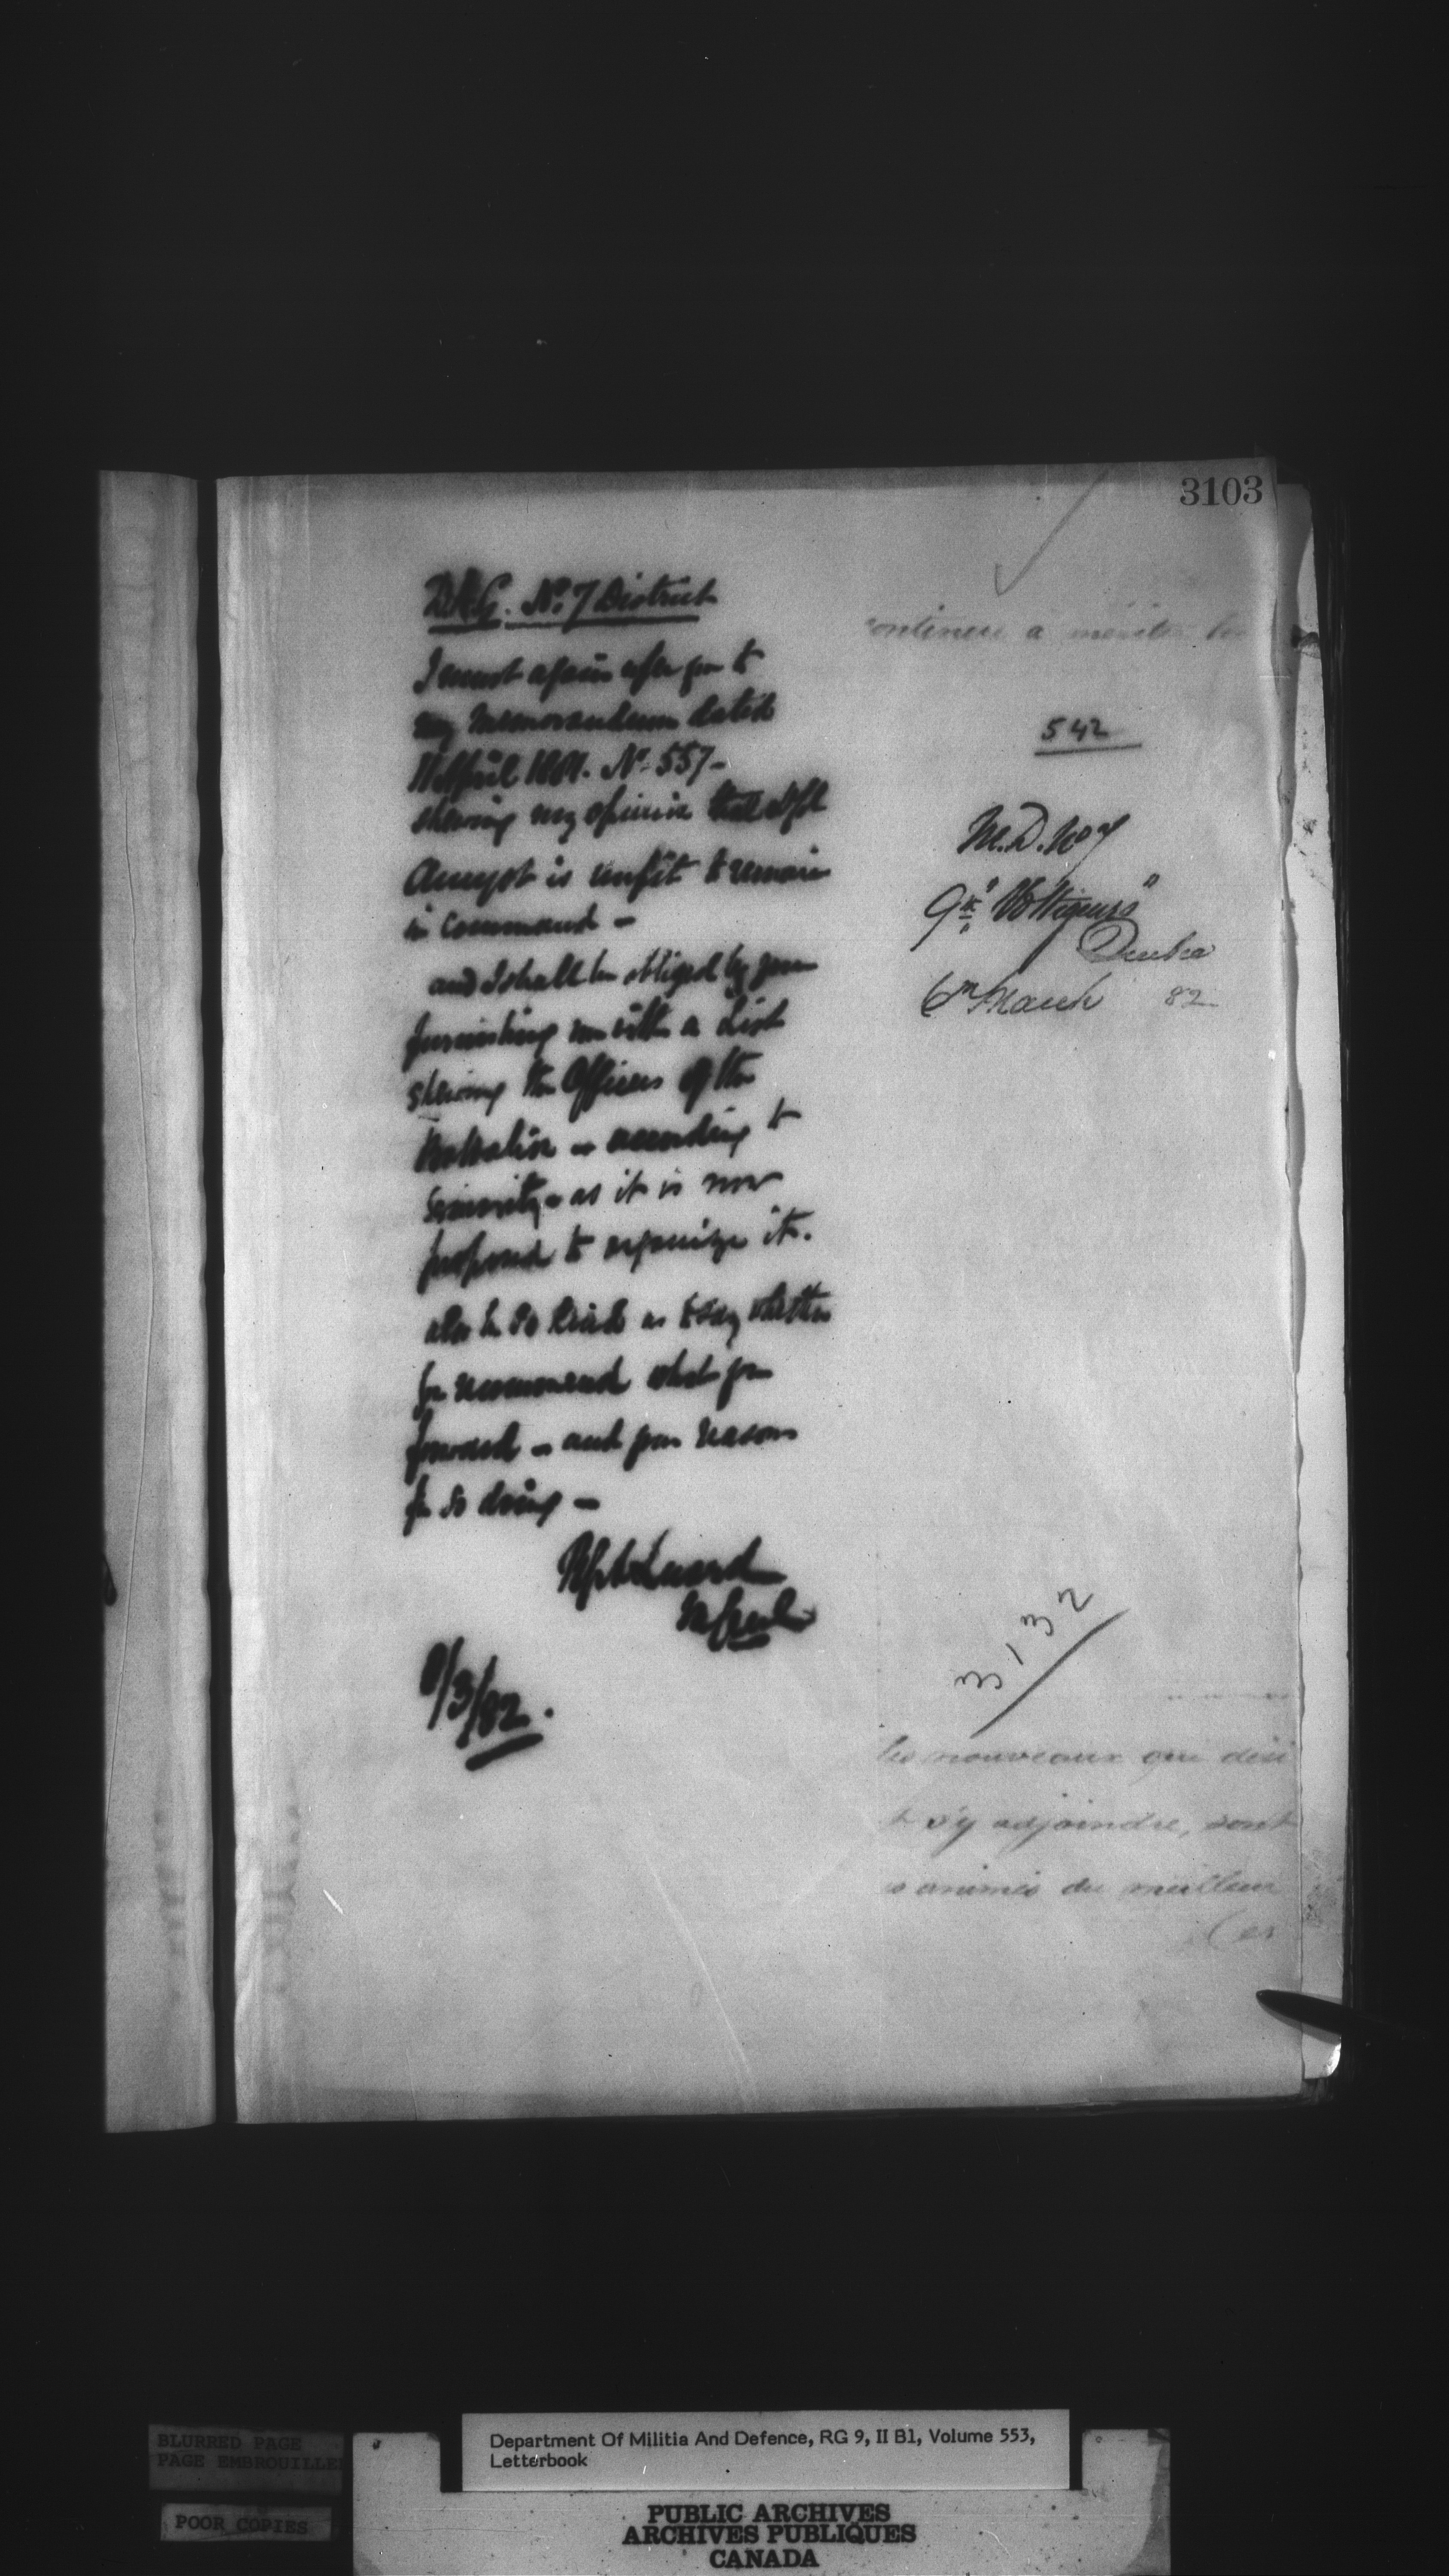 3103
D.A.G. No. 7 District
I must again refer you to
my memorandum dated
11 April 1881. No. 557-
shewing my opinion that Lt Col
Amyot is unfit to remain
in command -
and I shall be obliged by your
furnishing me with a List
shewing the Officers of the
Battalion - according to
Seniority - as it is now
proposed to reorganize it.
also be so kind as to say whether
you recommend what you
forward - and your reasons
for so doing -
Luard
M Genl
9/3/82.
continuer a meriter
542
M.D. No 7
9th "Voltigeurs"
Quebec
6th March 82
3132
les nouveaux qui dési
s'y adjoindre, sont
animés du meilleur
Ces
BLURRED PAGE
PAGE EMBROUILLE
POOR COPIES
Department Of Militia And Defence, RG 9, II B1, Volume 553,
Letterbook
PUBLIC ARCHIVES
ARCHIVES PUBLIQUES
CANADA